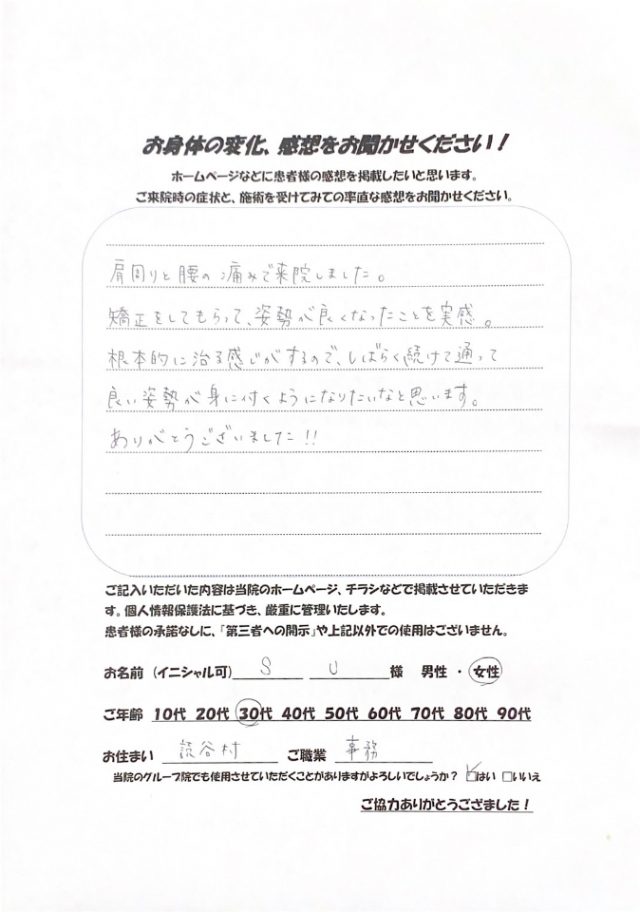 お身体の変化、感想をお聞かせください！
ホームページなどに患者様の感想を掲載したいと思います。
ご来院時の症状と、施術を受けてみての率直な感想をお聞かせください。
肩周りと腰の痛みで来院しました。
矯正をしてもらって、姿勢が良くなったことを実感。
根本的に治る感じがするので、しばらく続けて通って
良い姿勢が身に付くようになりたいなと思います。
ありがとうございました!!
ご記入いただいた内容は当院のホームページ、チラシなどで掲載させていただきま
す。個人情報保護法に基づき、厳重に管理いたします。
患者様の承諾なしに、「第三者への開示」や上記以外での使用はございません。
お名前（イニシャル可） S U 様 男性・女性
ご年齢 10代 20代 30代 40代 50代 60代 70代 80代 90代
お住まい 読谷村 ご職業 事務
当院のグループ院でも使用させていただくことがありますがよろしいでしょうか？ ☑はい □いいえ
ご協力ありがとうござまました！